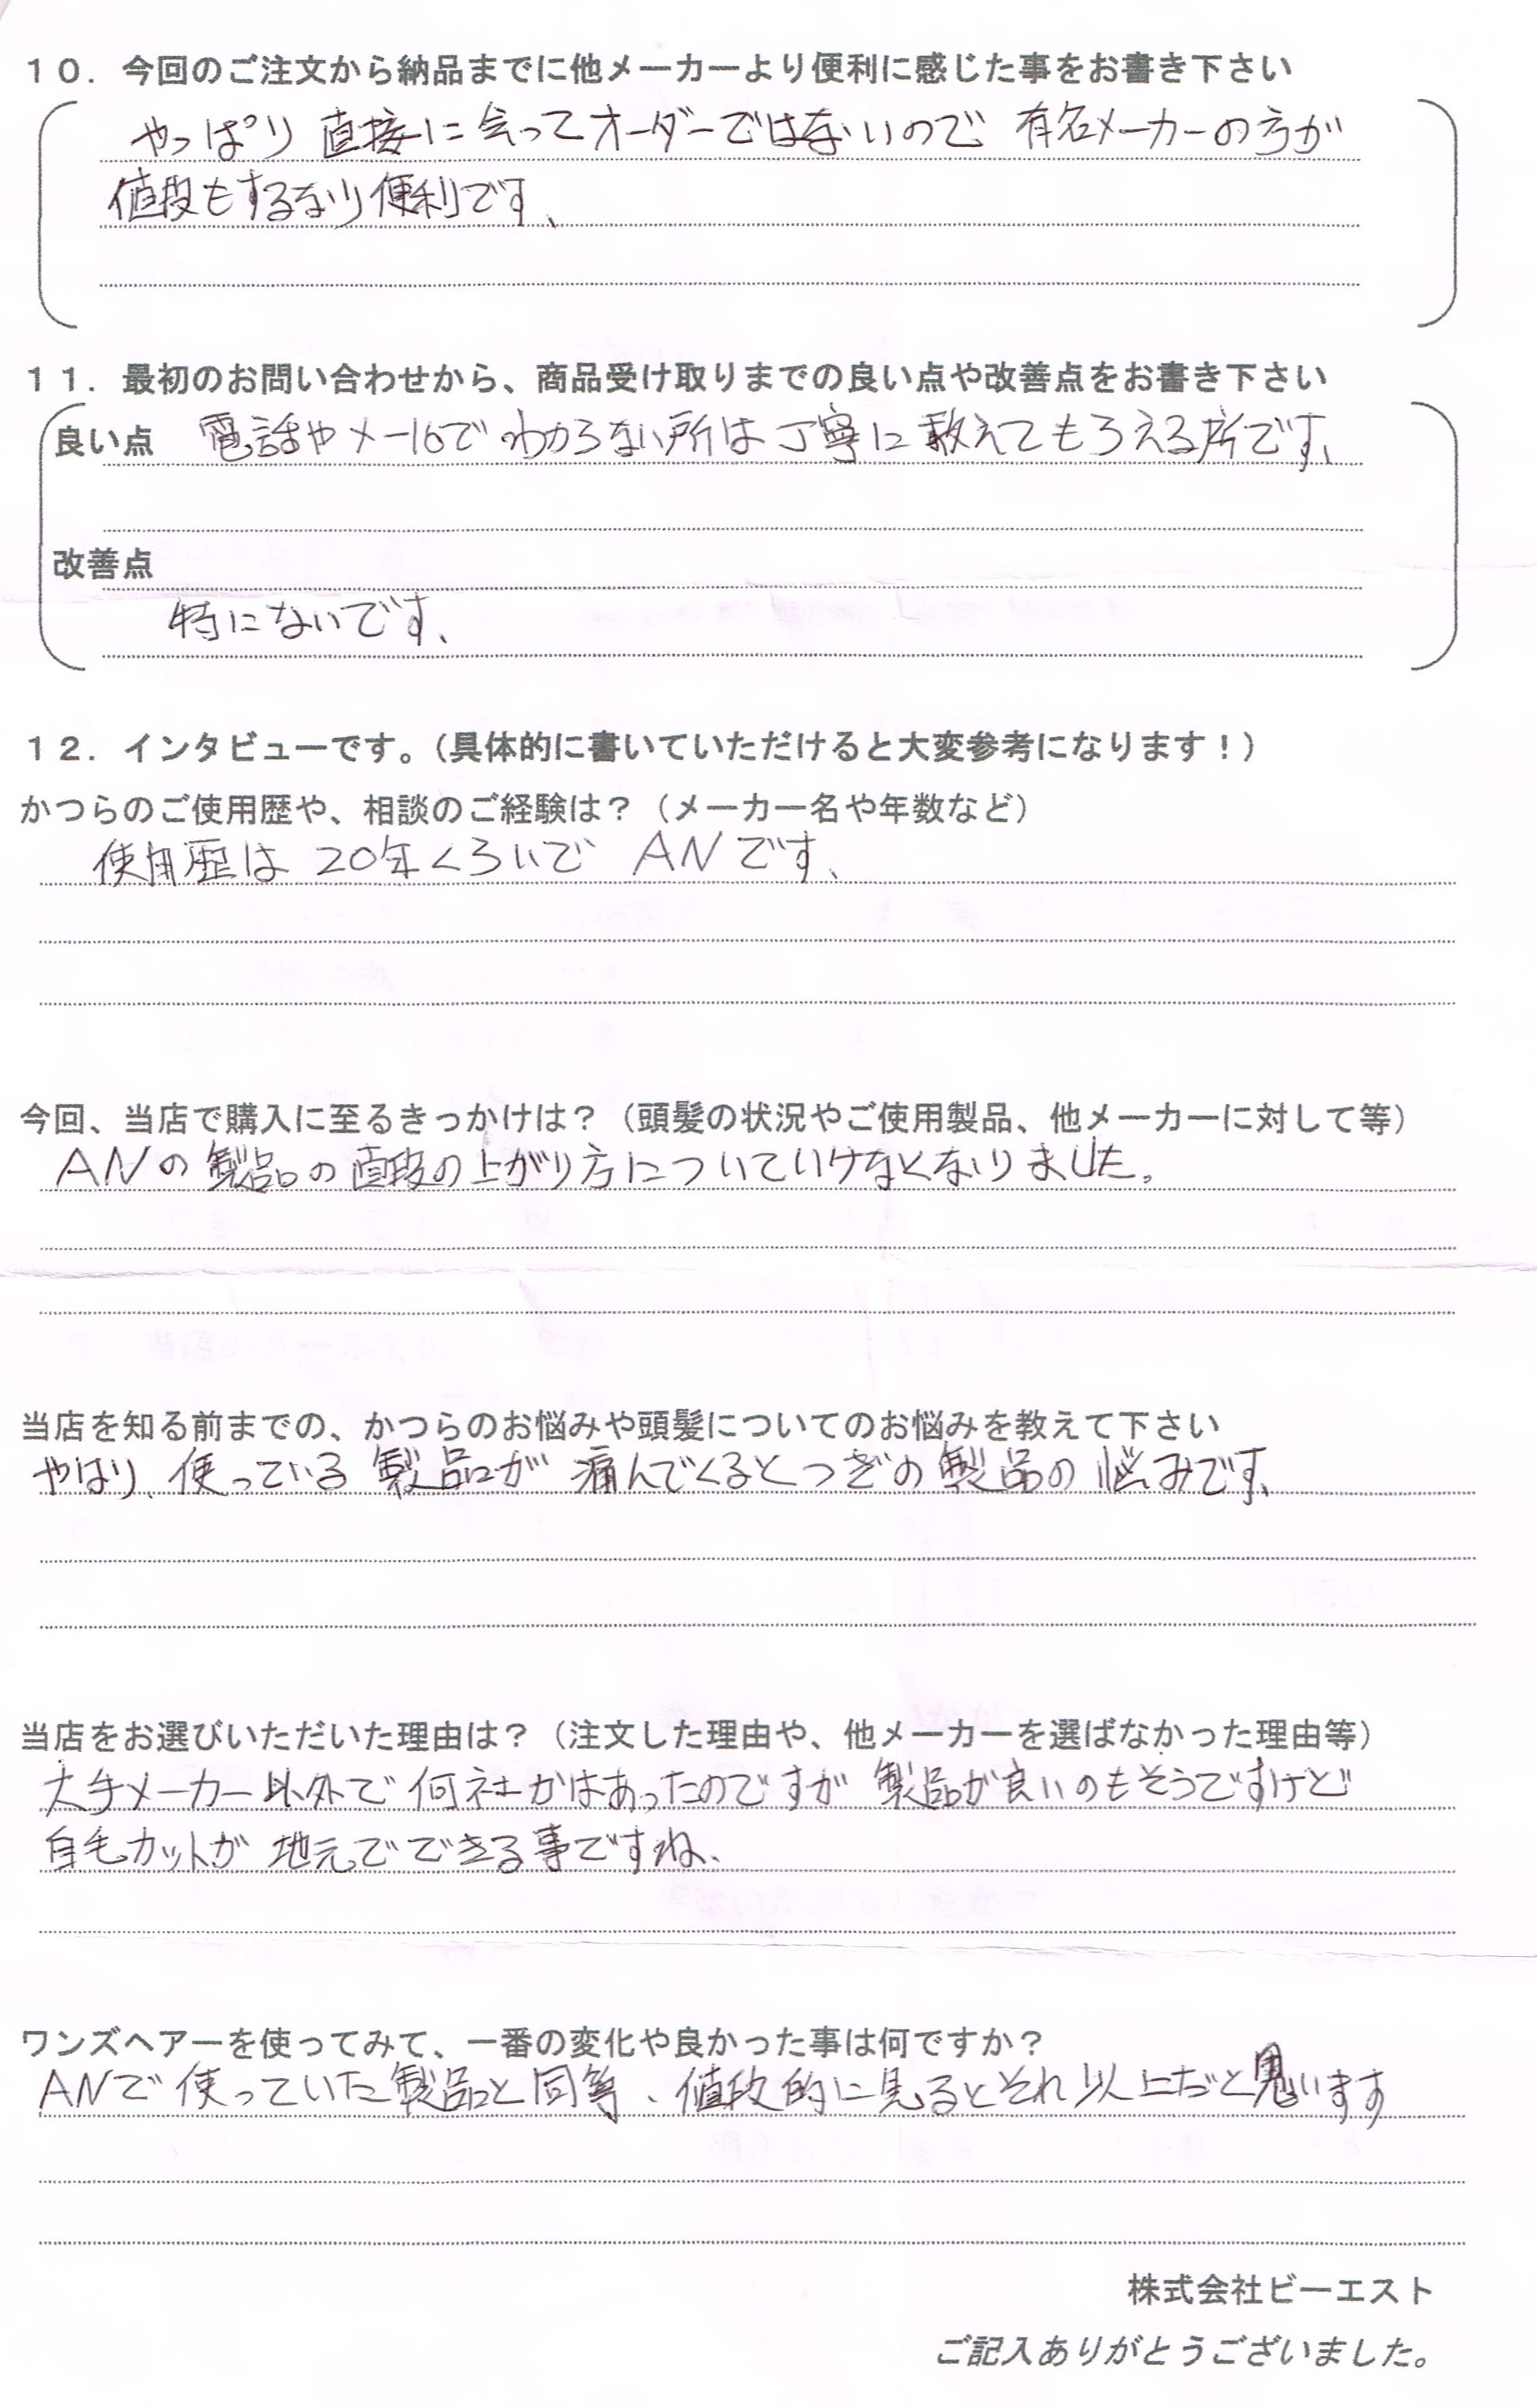 10．今回のご注文から納品までに他メーカーより便利に感じた事をお書き下さい
やっぱり 直接に会ってオーダーではないので 有名メーカーの方が
値段もするなり便利です、
11．最初のお問い合わせから、商品受け取りまでの良い点や改善点をお書き下さい
良い点 電話やメールでわからない所は丁寧に教えてもらえる所です、
改善点
特にないです、
12．インタビューです。（具体的に書いていただけると大変参考になります！）
かつらのご使用歴や、相談のご経験は？（メーカー名や年数など）
使用歴は 20年くらいで ANです、
今回、当店で購入に至るきっかけは？（頭髪の状況やご使用製品、他メーカーに対して等）
ANの製品の直段の上がり方についていけなくなりました。
当店を知る前までの、かつらのお悩みや頭髪についてのお悩みを教えて下さい
やはり、使っている 製品が 痛んでくるとつぎの製品の悩みです、
当店をお選びいただいた理由は？（注文した理由や、他メーカーを選ばなかった理由等）
大手メーカー以外で 何社かはあったのですが 製品が良いのもそうですけど
自毛カットが 地元でできる事ですね、
ワンズヘアーを使ってみて、一番の変化や良かった事は何ですか？
ANで使っていた製品と同等、値段的に見るとそれ以上だと思います
株式会社ビーエスト
ご記入ありがとうございました。